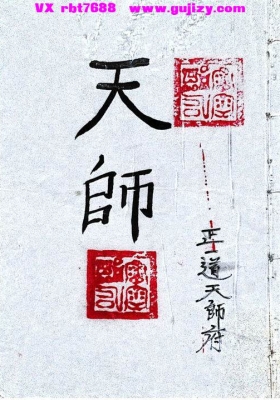 VX rbt7688 www.gujizy.com
天師
正一道天师府